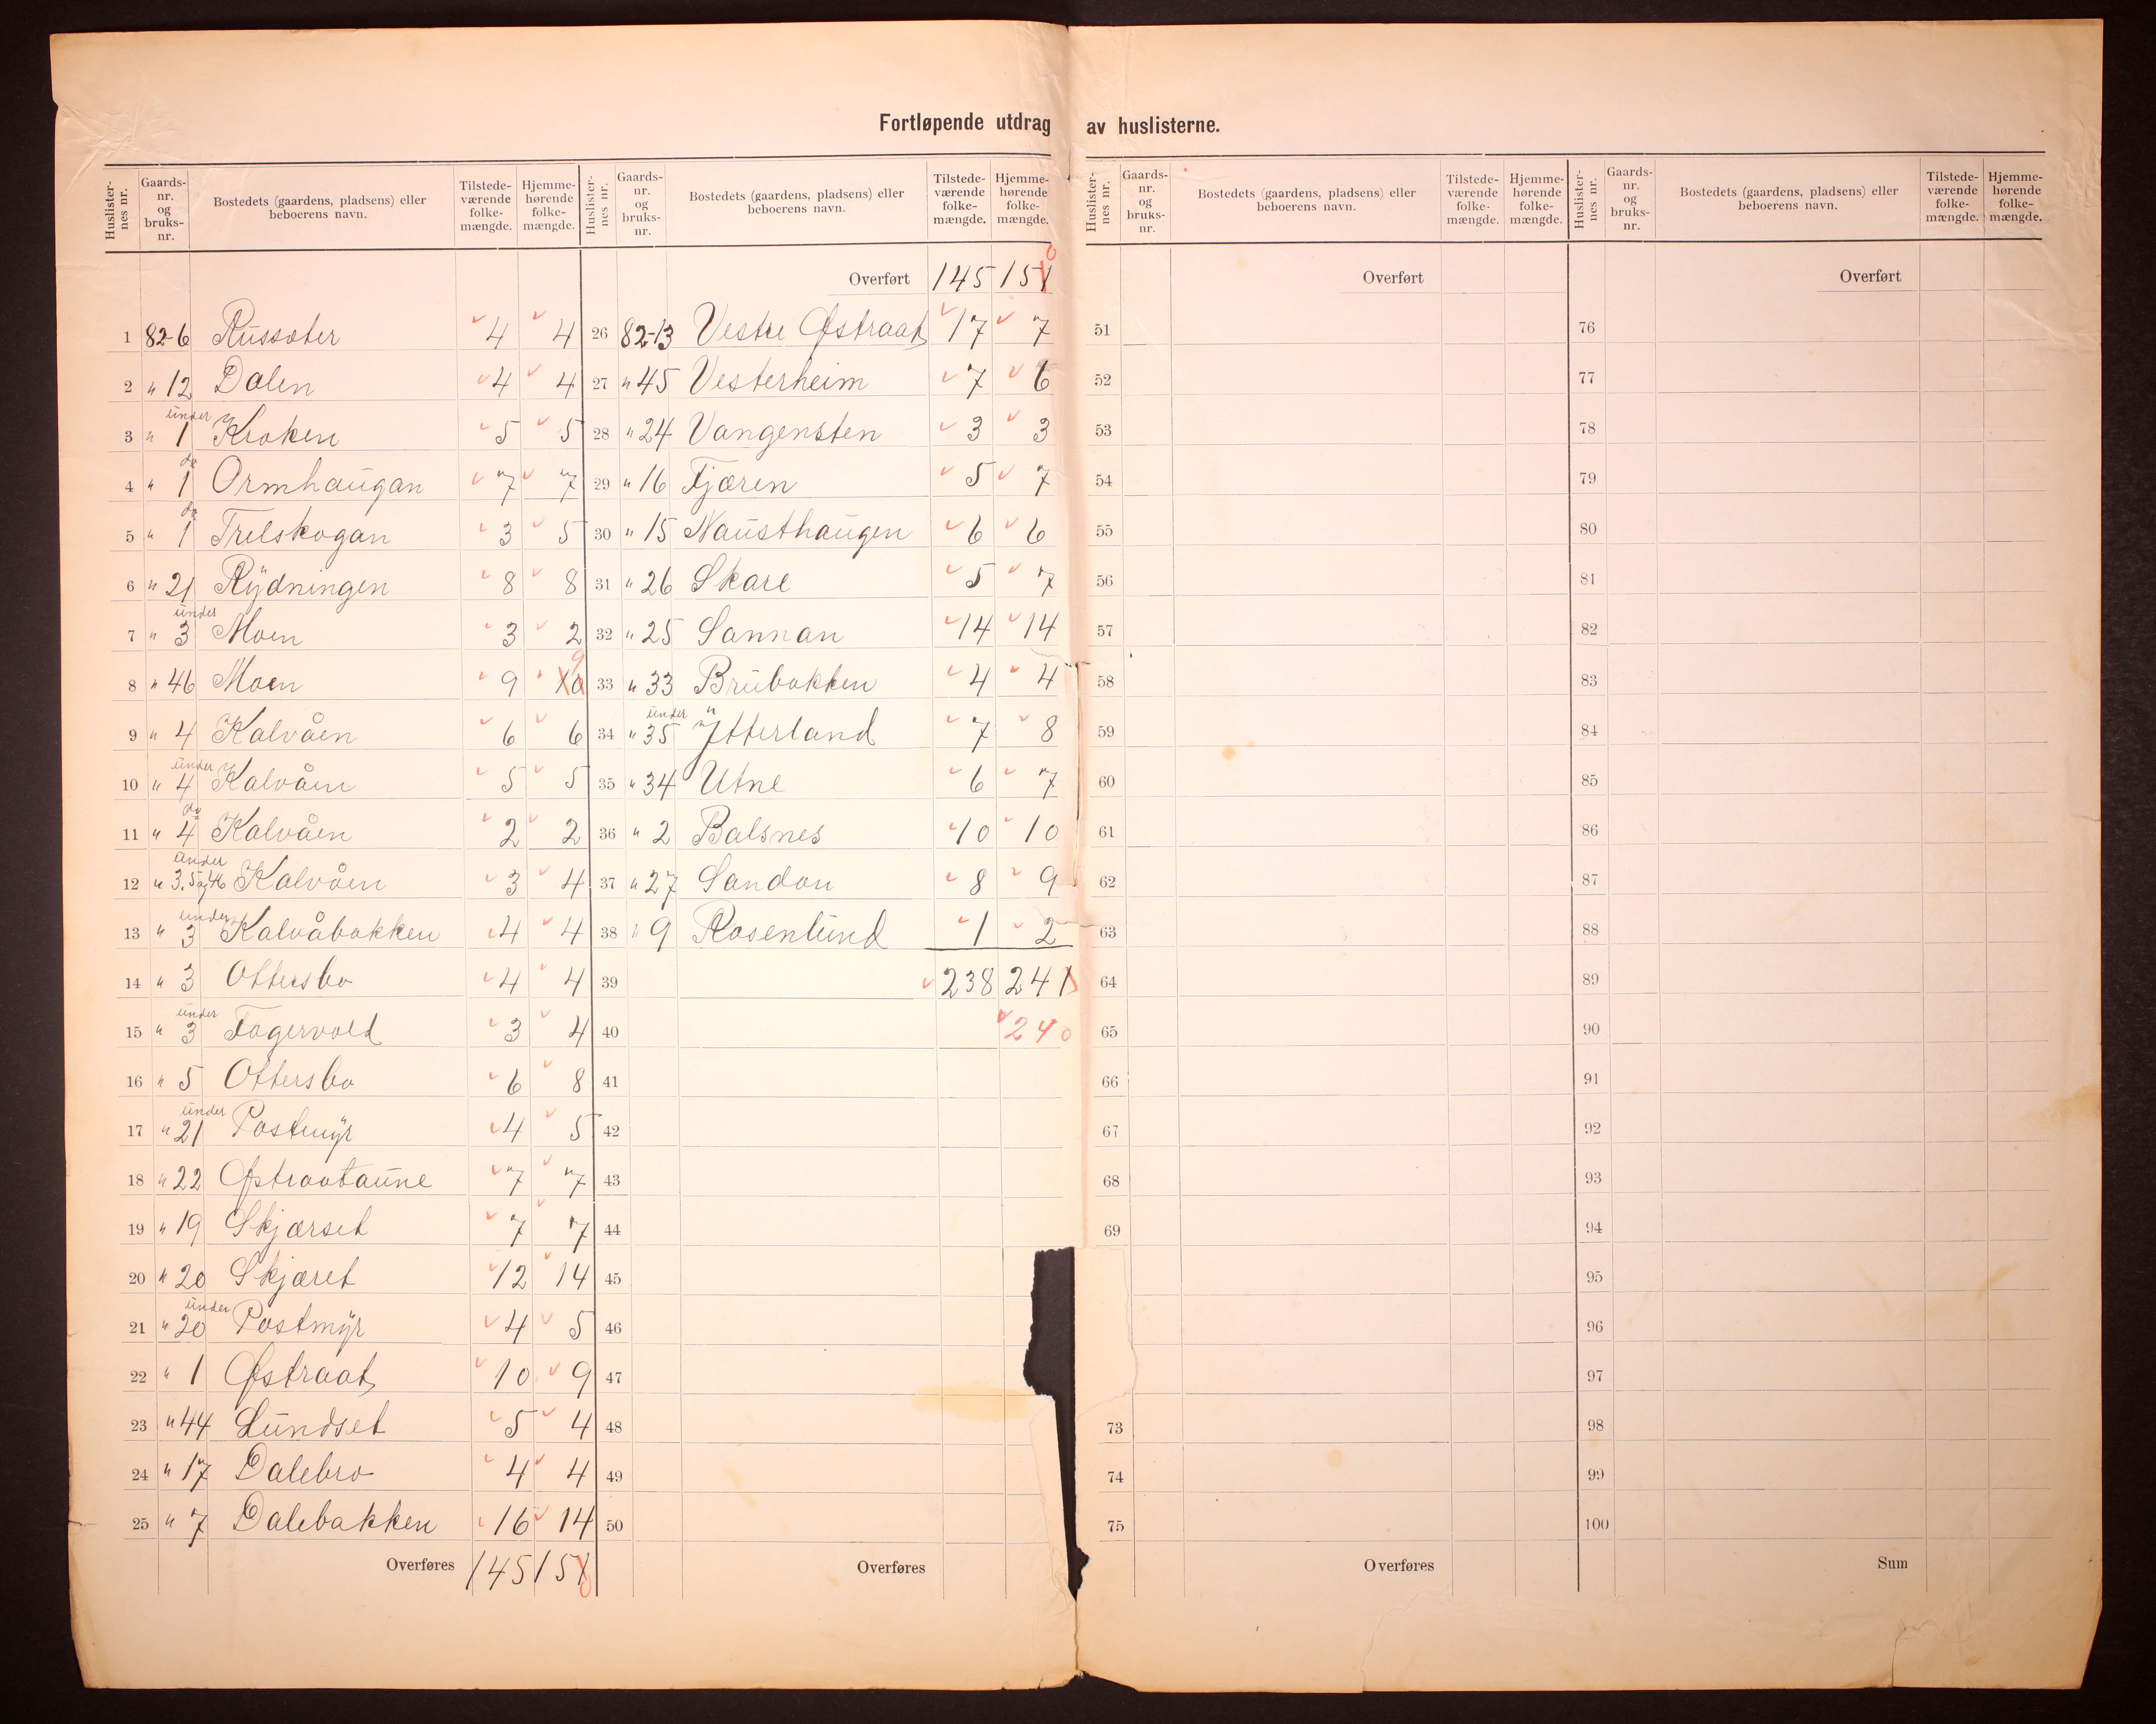 Fortløpende utdrag av huslisterne.
Huslisternes nr. Gaards-nr. og bruks-nr. Bostedets (gaardens, pladsens) eller beboerens navn. Tilstede-værende folke-mængde. Hjemme-hørende folke-mængde.
1 82-6 Russæter 4 4
2 " 12 Dalen 4 4
3 " under 1 Kroken 5 5
4 " do 1 Ormhaugan 7 7
5 " do 1 Trelskogan 3 5
6 " 21 Rydningen 8 8
7 " under 3 Moen 3 2
8 " 46 Moen 9 10 9
9 " 4 Kalvåen 6 6
10 " under 4 Kalvåen 5 5
11 " do 4 Kalvåen 2 2
12 " under 3, 5 og 46 Kalvåen 3 4
13 " under 3 Kalvåbakken 4 4
14 " 3 Ottersbo 4 4
15 " under 3 Fagervold 3 4
16 " 5 Ottersbo 6 8
17 " under 21 Postmyr 4 5
18 " 22 Østraataune 7 7
19 " 19 Skjærset 7 7
20 " 20 Skjæret 12 14
21 " under 20 Postmyr 4 5
22 " 1 Østraat 10 9
23 " 44 Lundset 5 4
24 " 17 Dalebro 4 4
25 " 7 Dalebakken 16 14
Overføres 145 151 0
Huslisternes nr. Gaards-nr. og bruks-nr. Bostedets (gaardens, pladsens) eller beboerens navn. Tilstede-værende folke-mængde. Hjemme-hørende folke-mængde.
Overført 145 151 0
26 82-13 Vestre Østraat 17 7
27 " 45 Vesterheim 7 6
28 " 24 Vangensten 3 3
29 " 16 Fjæren 5 7
30 " 15 Nausthaugen 6 6
31 " 26 Skare 5 7
32 " 25 Sannan 14 14
33 " 33 Brubakken 4 4
34 " under 35 Ytterland 7 8
35 " 34 Utne 6 7
36 " 2 Balsnes 10 10
37 " 27 Sandan 8 9
38 " 9 Rosenlund 1 2
39 238 241
40 240
41
42
43
44
45
46
47
48
49
50
Overføres
Huslisternes nr. Gaards-nr. og bruks-nr. Bostedets (gaardens, pladsens) eller beboerens navn. Tilstede-værende folke-mængde. Hjemme-hørende folke-mængde.
Overført
51
52
53
54
55
56
57
58
59
60
61
62
63
64
65
66
67
68
69
73
74
75
Overføres
Huslisternes nr. Gaards-nr. og bruks-nr. Bostedets (gaardens, pladsens) eller beboerens navn. Tilstede-værende folke-mængde. Hjemme-hørende folke-mængde.
Overført
76
77
78
79
80
81
82
83
84
85
86
87
88
89
90
91
92
93
94
95
96
97
98
99
100
Sum